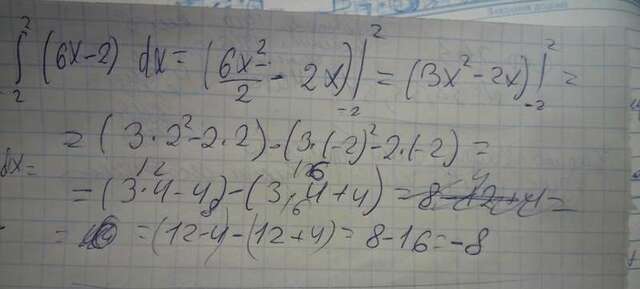 ∫₋₂² (6x-2) dx = (6x²/2 - 2x)|₋₂² = (3x² - 2x)|₋₂² =
= (3·2² - 2·2) - (3·(-2)² - 2·(-2) =
dx=
= (3·4 - 4) - (3·4 + 4) =
= (12-4) - (12+4) = 8 - 16 = -8